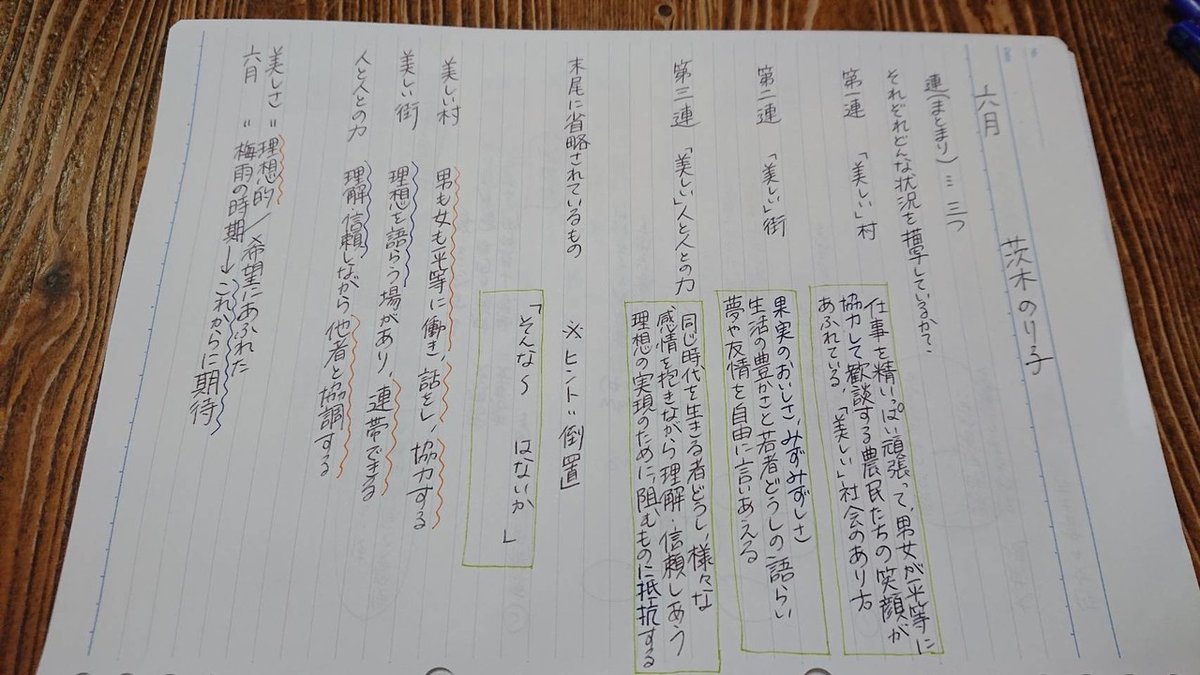 六月
茨木のり子
連(まとまり)…三つ
それぞれどんな状況を描写しているか?
第一連 「美しい」村
仕事を精いっぱい頑張って、男女が平等に
協力して歓談する農民たちの笑顔が
あふれている、「美しい」社会のあり方
第二連 「美しい」街
果実のおいしさ、みずみずしさ
生活の豊かさと若者どうしの語らい
夢や友情を自由に言いあえる
第三連 「美しい」人と人との力
同じ時代を生きる者どうし、様々な
感情を抱きながら理解・信頼しあう
理想の実現のために、阻むものに抵抗する
末尾に省略されているもの ※ヒント=倒置
「そんな〜 はないか」
美しい村 男も女も平等に働き、話をし、協力する
美しい街 理想を語らう場があり、連帯できる
人と人との力 理解・信頼しながら他者と協調する
美しさ=理想的/希望にあふれた
六月=梅雨の時期→これからに期待